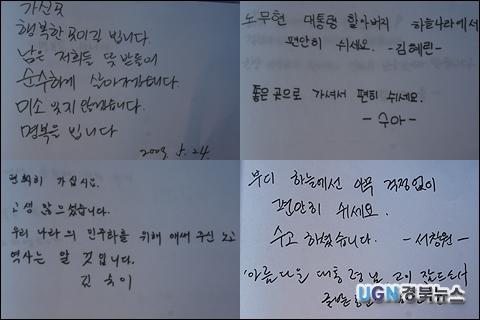 가신 곳
행복한 곳이길 빕니다.
남은 저희는 덕 받들어
순수하게 살아가겠습니다.
미소 잊지 않겠습니다.
명복을 빕니다
2009. 5. 24.
노무현 대통령 할아버지 하늘나라에서
편안히 쉬세요. -김혜린-
좋은곳으로 가셔서 편히 쉬세요.
- 수아 -
편히 가십시오.
고생 많으셨습니다.
우리 나라의 민주화를 위해 애써 주신 노고
역사는 알 것입니다.
김 숙이
부디 하늘에선 아무 걱정없이
편안히 쉬세요.
수고 하셨습니다. -서창원-
아름다운 대통령님 고이 잠드소서
UGN경북뉴스